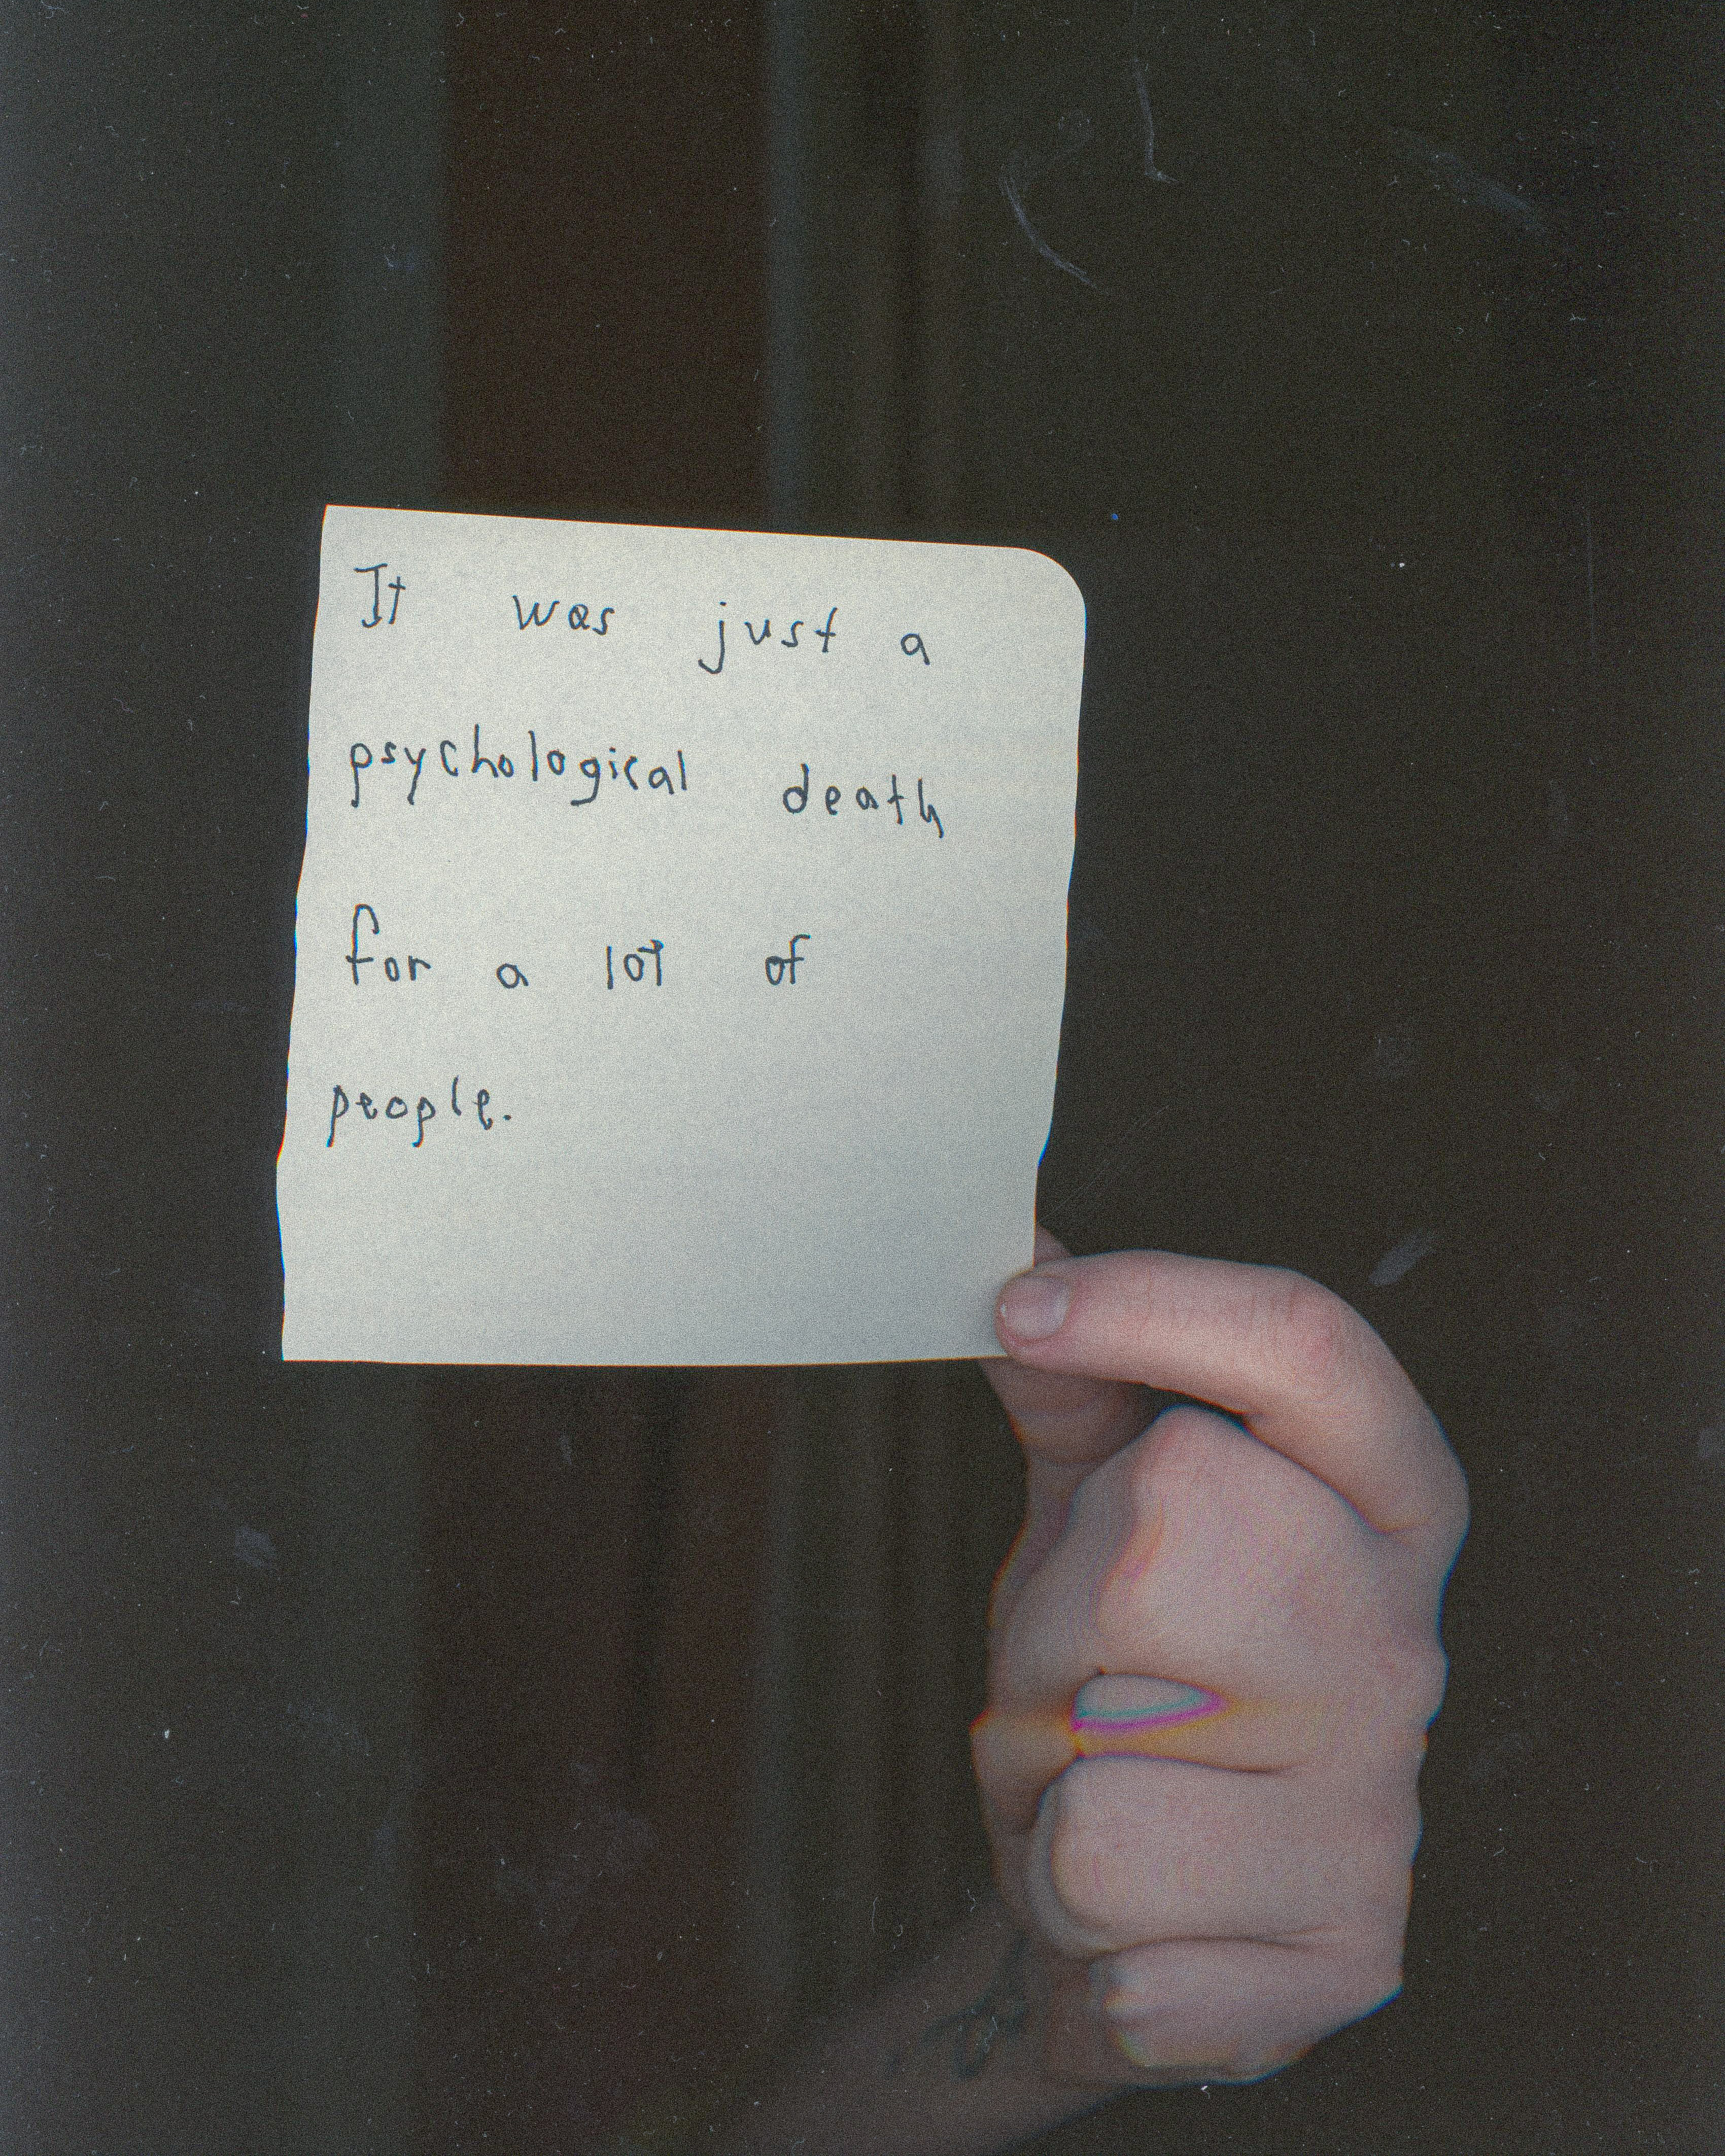 It was just a
psychological death
for a lot of
people.